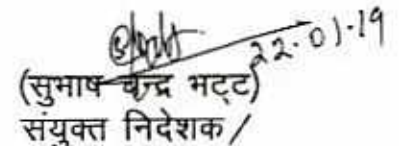 22.01.19
(सुभाष चन्द्र भट्ट)
संयुक्त निदेशक /